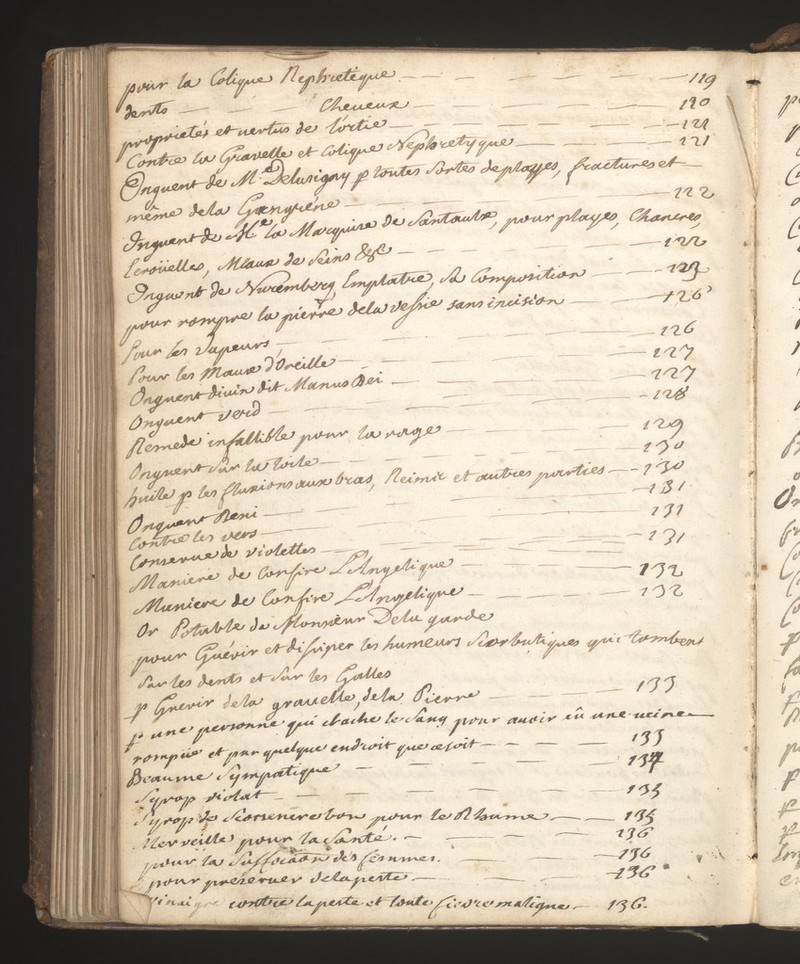 pour la Colique Nephretique — 119
dents — Cheueux — 120
proprietés et uertus de l'ortie — 121
Contre la Grauelle et Colique Nephretyque — 121
Onguent de Me Delusigny p toutes sortes de playes, fractures et
même dela Gangréne — 122
Onguent de Me la Marquise de Santaulx, pour playes, Chancres,
Ecroüelles, Maux de Seins &c — 122
Onguent de Nuremberg Emplatre, Sa Composition — 123
pour rompre la pierre dela vessie sans incision — 126
Pour les Vapeurs — 126
Pour les Maux d'Oreille — 127
Onguent diuin dit Manus Dei — 127
Onguent verd — 128
Remede infallible pour la rage — 129
Onguent sur la toile — 130
huile p les fluxions aux bras, et autres parties — 130
Onguent Beni — 131
Contre les vers — 131
Conserue de violettes — 131
Maniere de Confire L'Angelique — 132
Maniere de Confire L'Angelique — 132
Or Potable de Monsieur Dela garde
pour Guérir et dissiper les humeurs Scorbutiques qui tombent
Sur les dents et sur les
p Guerir dela grauelle, dela Pierre — 133
p une personne qui crache le Sang pour auoir eü une ueine
rompüe et par quelque endroit que ce soit — 133
Beaume Sympatique — 134
Syrop violat — 135
Syrop de Scorsenere bon pour le Rhume — 135
Merveille pour la Santé. — 136
pour la Suffocaon des femmes. — 136
pour preseruer dela peste — 136
Vinaigre contre la peste et toute fievre maligne — 136.